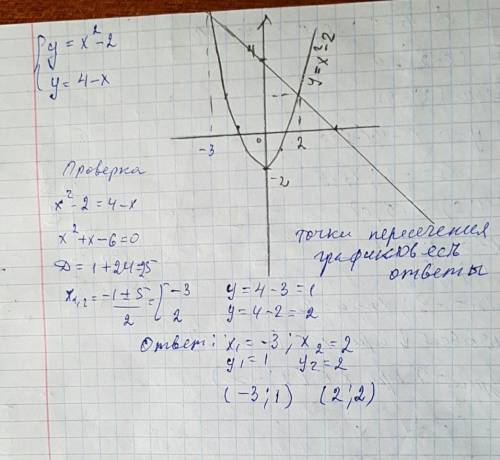 y = x² - 2
y = 4 - x
-3
4
y = x² - 2
0
2
-2
Проверка
x² - 2 = 4 - x
x² + x - 6 = 0
D = 1 + 24 = 25
x₁,₂ = (-1 ± 5)/2 = [-3
2
точки пересечения
графиков есть
ответы
y = 4 - 3 = 1
y = 4 - 2 = 2
Ответ: x₁ = -3; x₂ = 2
y₁ = 1 y₂ = 2
(-3; 1) (2; 2)